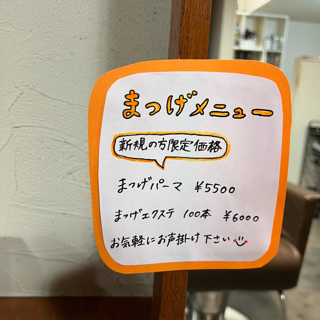 まつげメニュー
新規の方限定価格
まつげパーマ ¥5500
まつげエクステ 100本 ¥6000
お気軽にお声掛け下さい